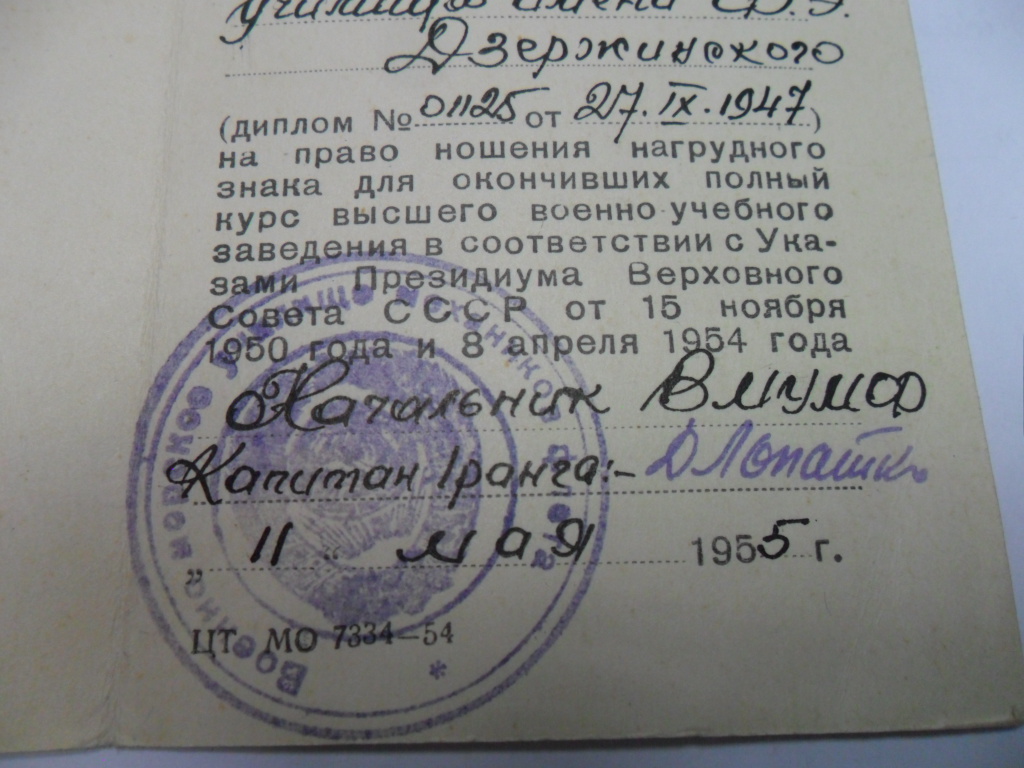 училища имени Ф.Э.
Дзержинского
(диплом № 01125 от 27.IX.1947)
на право ношения нагрудного
знака для окончивших полный
курс высшего военно-учебного
заведения в соответствии с Ука-
зами Президиума Верховного
Совета СССР от 15 ноября
1950 года и 8 апреля 1954 года
Начальник ВМУМФ
Капитан I ранга:-
"11" мая 1955 г.
ЦТ МО 7334–54
Военно морское училище механиков флота *